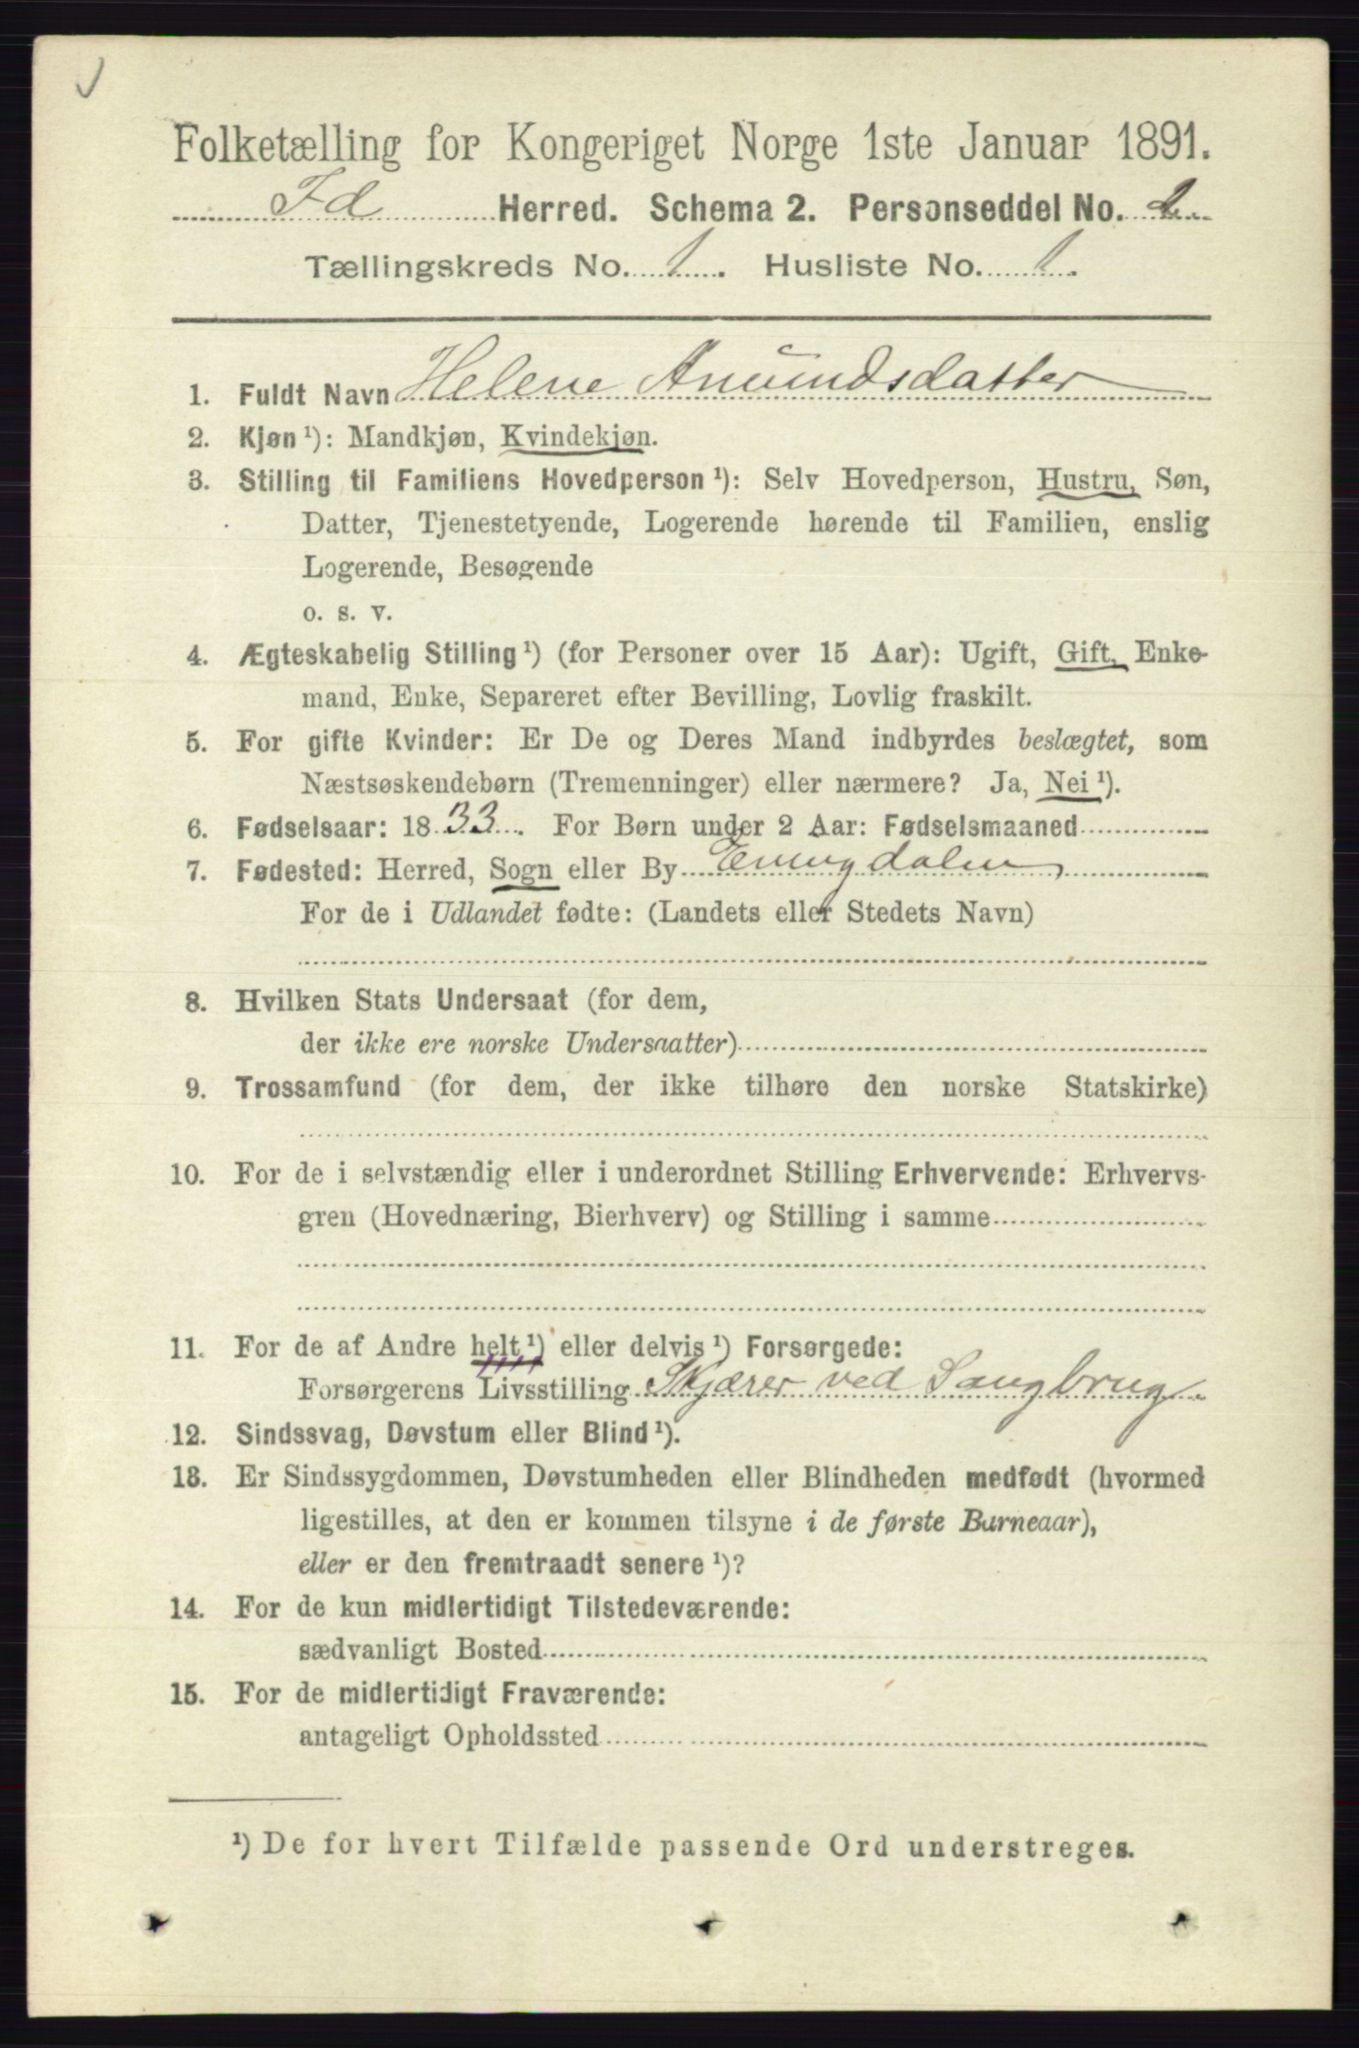 Folketælling for Kongeriget Norge 1ste Januar 1891.
Id Herred. Schema 2. Personseddel No. 2
Tællingskreds No. 1. Husliste No. 1.
1. Fuldt Navn Helene Amundsdatter
2. Kjøn ¹): Mandkjøn, Kvindekjøn.
3. Stilling til Familiens Hovedperson ¹): Selv Hovedperson, Hustru, Søn,
Datter, Tjenestetyende, Logerende hørende til Familien, enslig
Logerende, Besøgende
o. s. v.
4. Ægteskabelig Stilling ¹) (for Personer over 15 Aar): Ugift, Gift, Enke-
mand, Enke, Separeret efter Bevilling, Lovlig fraskilt.
5. For gifte Kvinder: Er De og Deres Mand indbyrdes beslægtet, som
Næstsøskendebørn (Tremenninger) eller nærmere? Ja, Nei ¹).
6. Fødselsaar: 1833. For Børn under 2 Aar: Fødselsmaaned
7. Fødested: Herred, Sogn eller By Enningdalen
For de i Udlandet fødte: (Landets eller Stedets Navn)
8. Hvilken Stats Undersaat (for dem,
der ikke ere norske Undersaatter)
9. Trossamfund (for dem, der ikke tilhøre den norske Statskirke)
10. For de i selvstændig eller i underordnet Stilling Erhvervende: Erhvervs-
gren (Hovednæring, Bierhverv) og Stilling i samme
11. For de af Andre helt ¹) eller delvis ¹) Forsørgede:
Forsørgerens Livsstilling Skjærer ved Saugbrug
12. Sindssvag, Døvstum eller Blind ¹).
13. Er Sindssygdommen, Døvstumheden eller Blindheden medfødt (hvormed
ligestilles, at den er kommen tilsyne i de første Barneaar),
eller er den fremtraadt senere ¹)?
14. For de kun midlertidigt Tilstedeværende:
sædvanligt Bosted
15. For de midlertidigt Fraværende:
antageligt Opholdssted
¹) De for hvert Tilfælde passende Ord understreges.